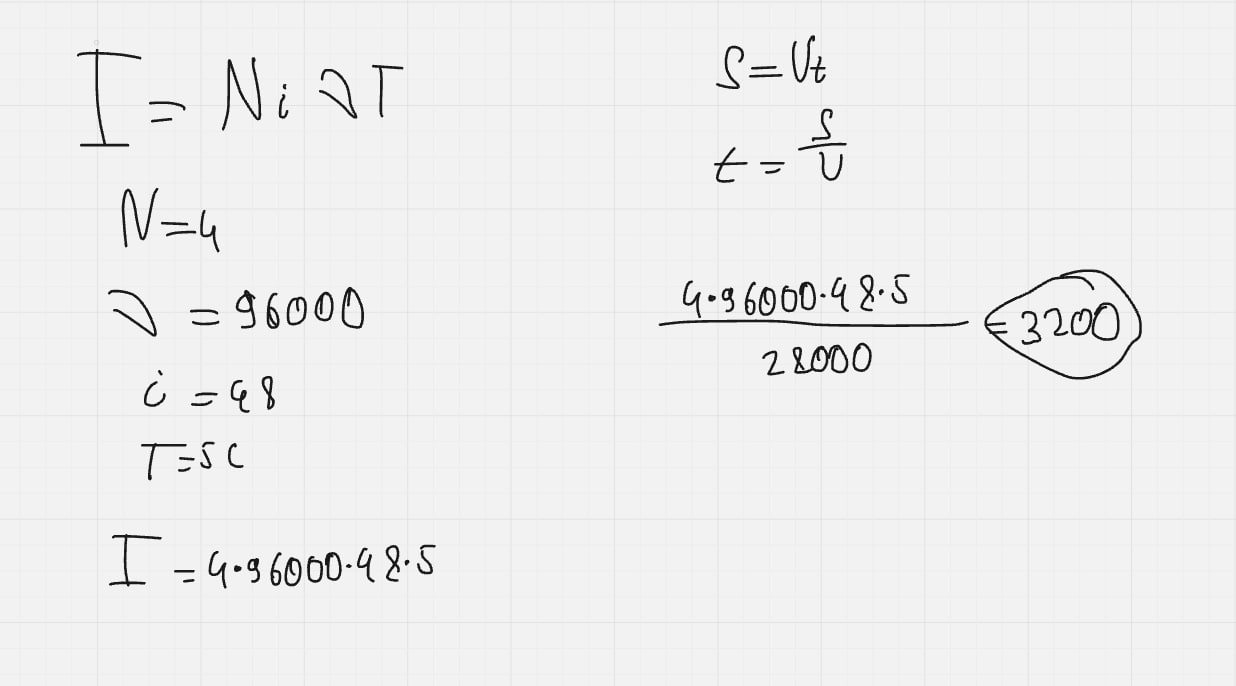 I = N i ∂ T
N = 4
∂ = 96000
i = 48
T = 5 c
I = 4·96000·48·5
S = Vt
t = S/V
4·96000·48·5 / 28000 = 3200